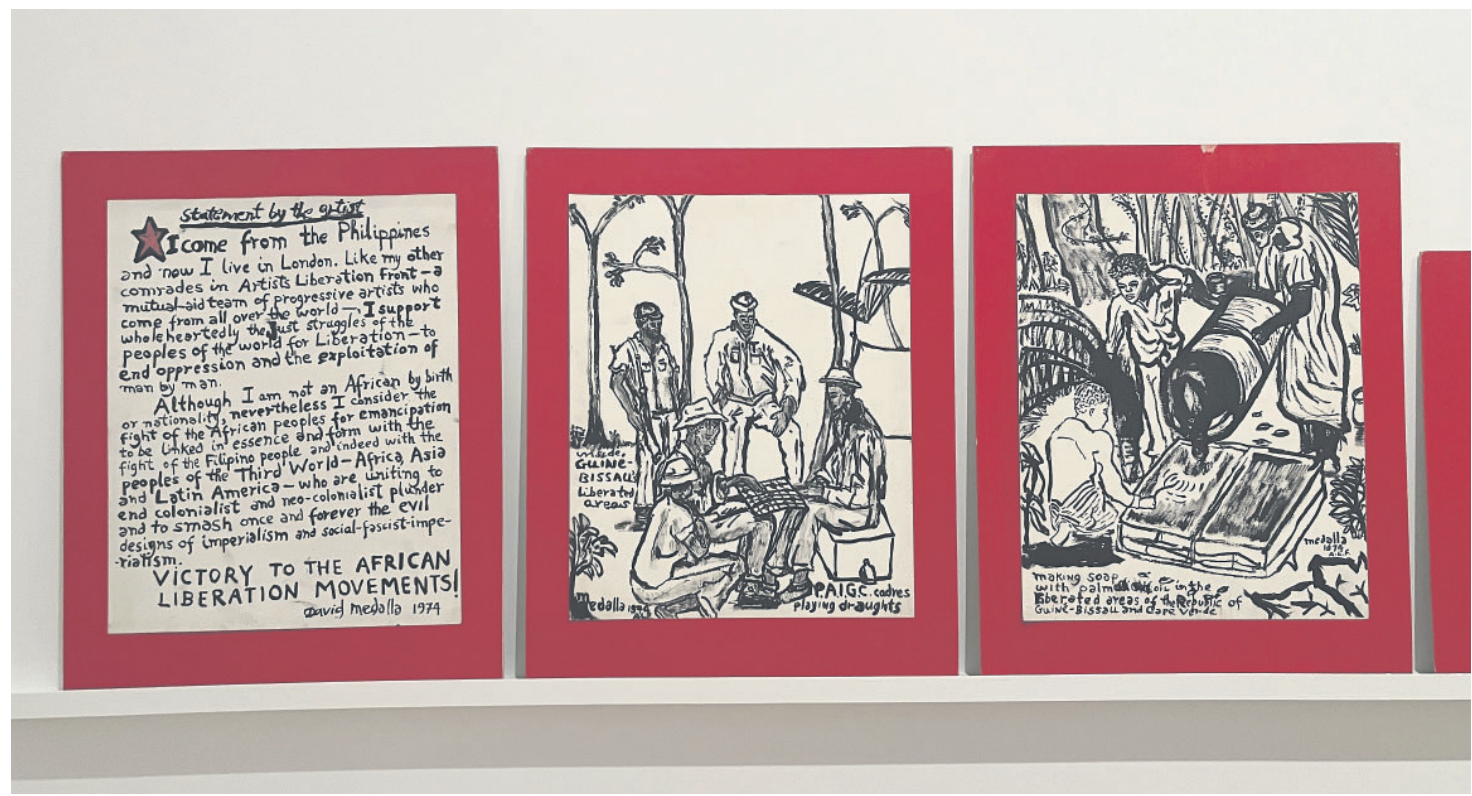 statement by the artist
I come from the Philippines
and now I live in London. Like my other
comrades in Artists Liberation Front – a
mutual-aid team of progressive artists who
come from all over the world –, I support
wholeheartedly the Just struggles of the
peoples of the world for Liberation – to
end oppression and the exploitation of
man by man.
Although I am not an African by birth
or nationality, nevertheless I consider the
fight of the African peoples for emancipation
to be linked in essence and form with the
fight of the Filipino people and indeed with the
peoples of the Third World – Africa, Asia
and Latin America – who are uniting to
end colonialist and neo-colonialist plunder
and to smash once and forever the evil
designs of imperialism and social-fascist-impe-
-rialism.
VICTORY TO THE AFRICAN
LIBERATION MOVEMENTS!
David Medalla 1974
GUINÉ-
BISSAU'S
liberated
areas
medalla 1974
P.A.I.G.C. cadres
playing draughts
medalla
1974
A.L.F.
making soap
with palm oil in the
liberated areas of the Republic of
Guiné-Bissau and Cape Verde